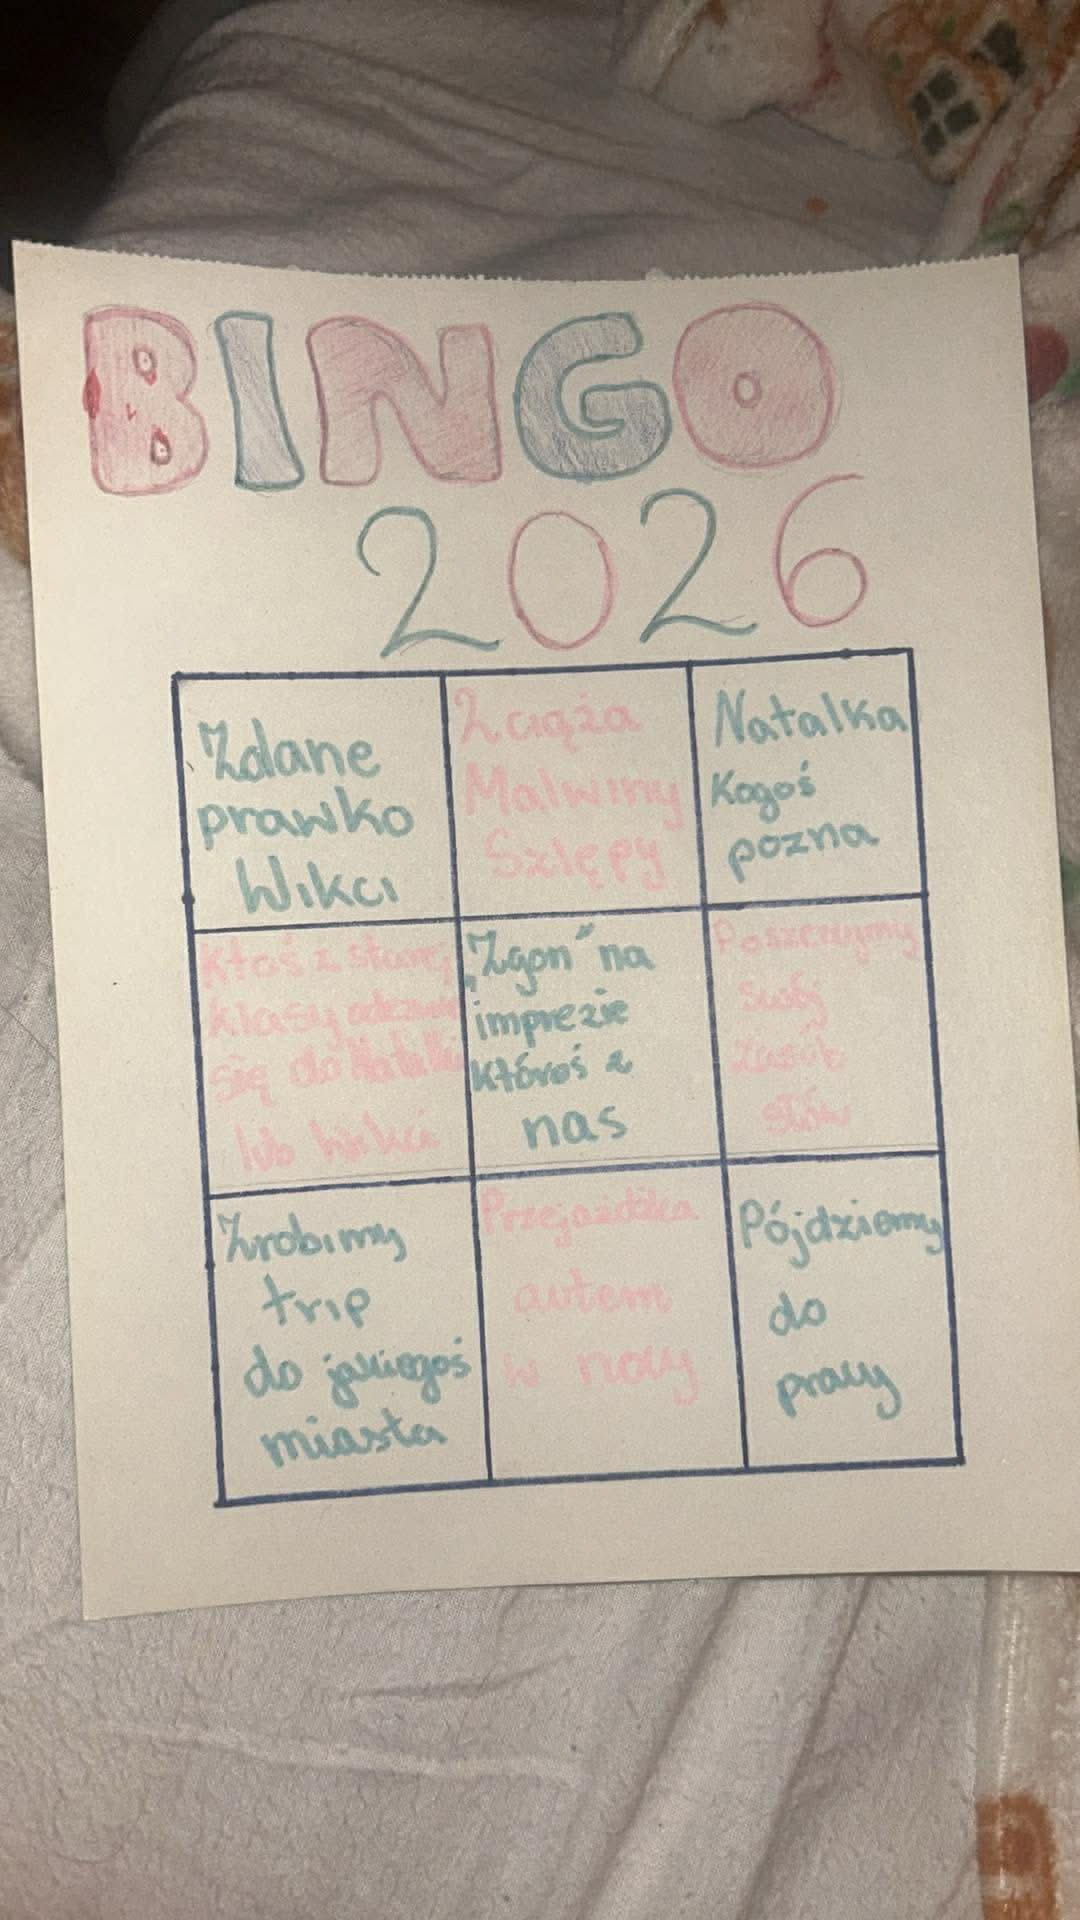 BINGO
2026
Zdane
prawko
Wikci
Natalka
kogoś
pozna
Malwiny
Szlępy
ktoś z starej
klasy
się do Natalki
lub Wikci
„Zgon" na
imprezie
któroś z
nas
Poszerzymy
swój
zasób
słów
Zrobimy
trip
do jakiegoś
miasta
Przejażdżka
autem
w nocy
Pójdziemy
do
pracy